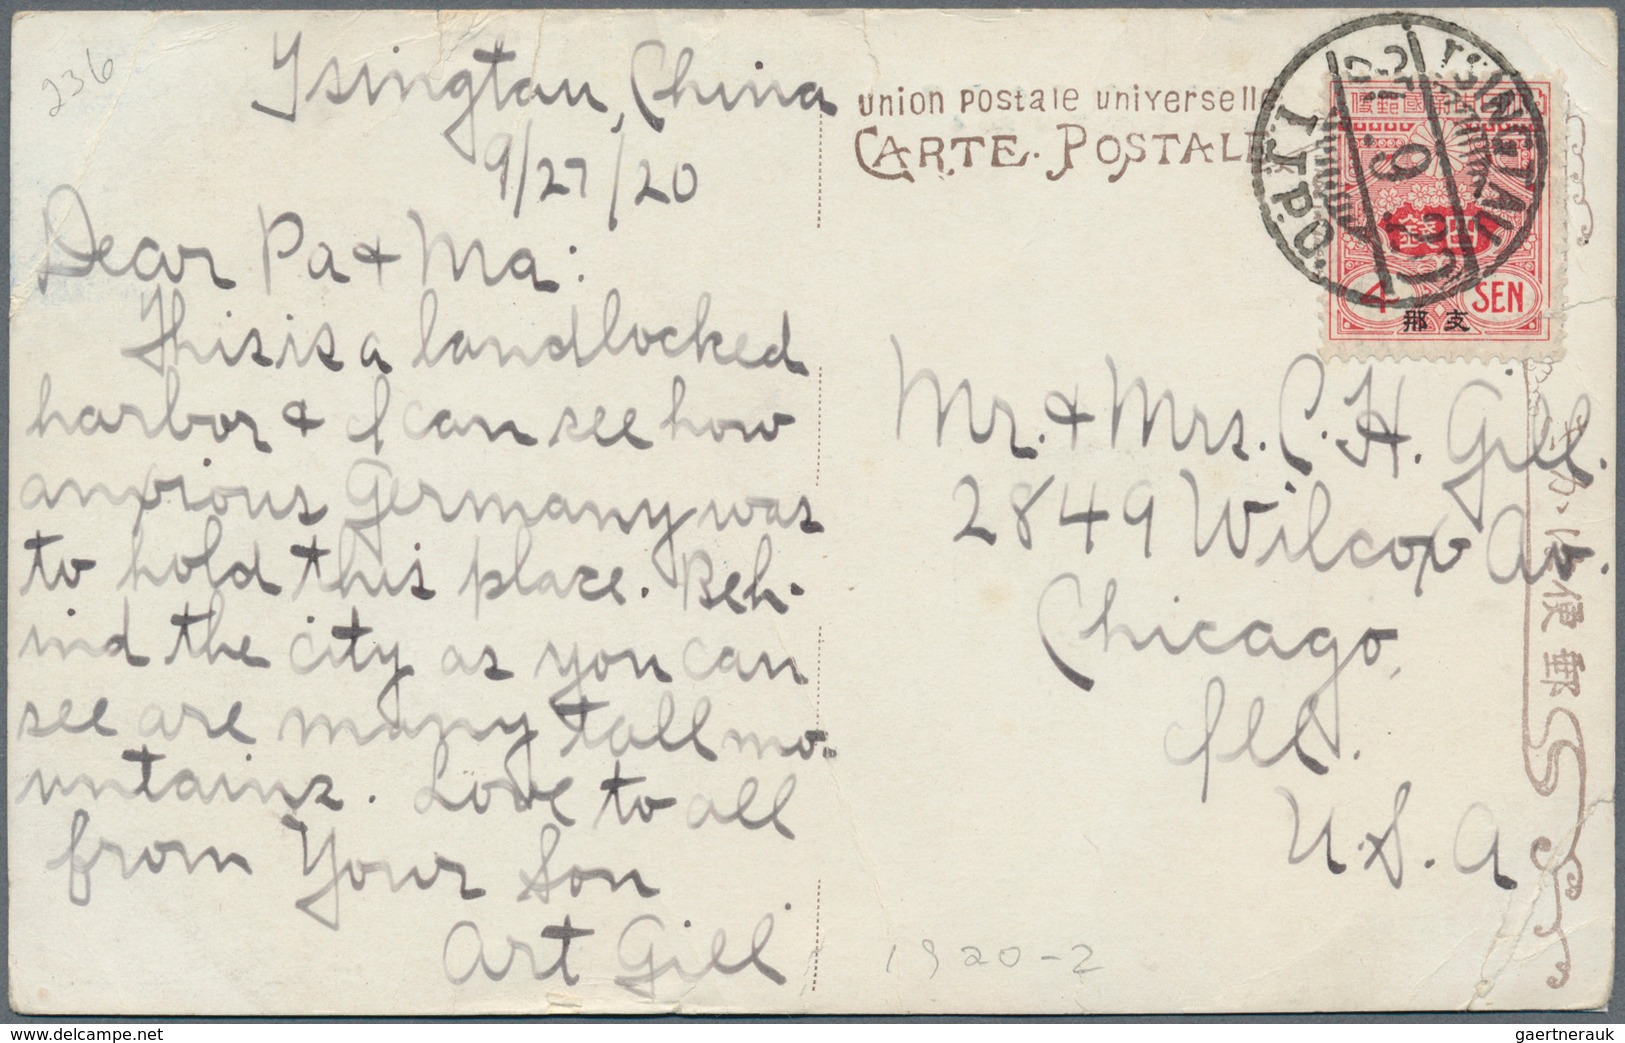 236
Tsingtau, China
9/27/20
Dear Pa & Ma:
This is a landlocked
harbor & I can see how
anxious Germany was
to hold this place. Beh-
ind the city as you can
see are many tall mo-
untains. Love to all
from Your Son
Art Gill
union postale universelle
CARTE POSTALE
TSINGTAU
I.J.P.O.
4 SEN
支那
Mr. & Mrs. C. H. Gill.
2849 Wilcox Av.
Chicago,
Ill.
U.S.A
1920-2
郵便はかき
gaertnerauk
www.delcampe.net